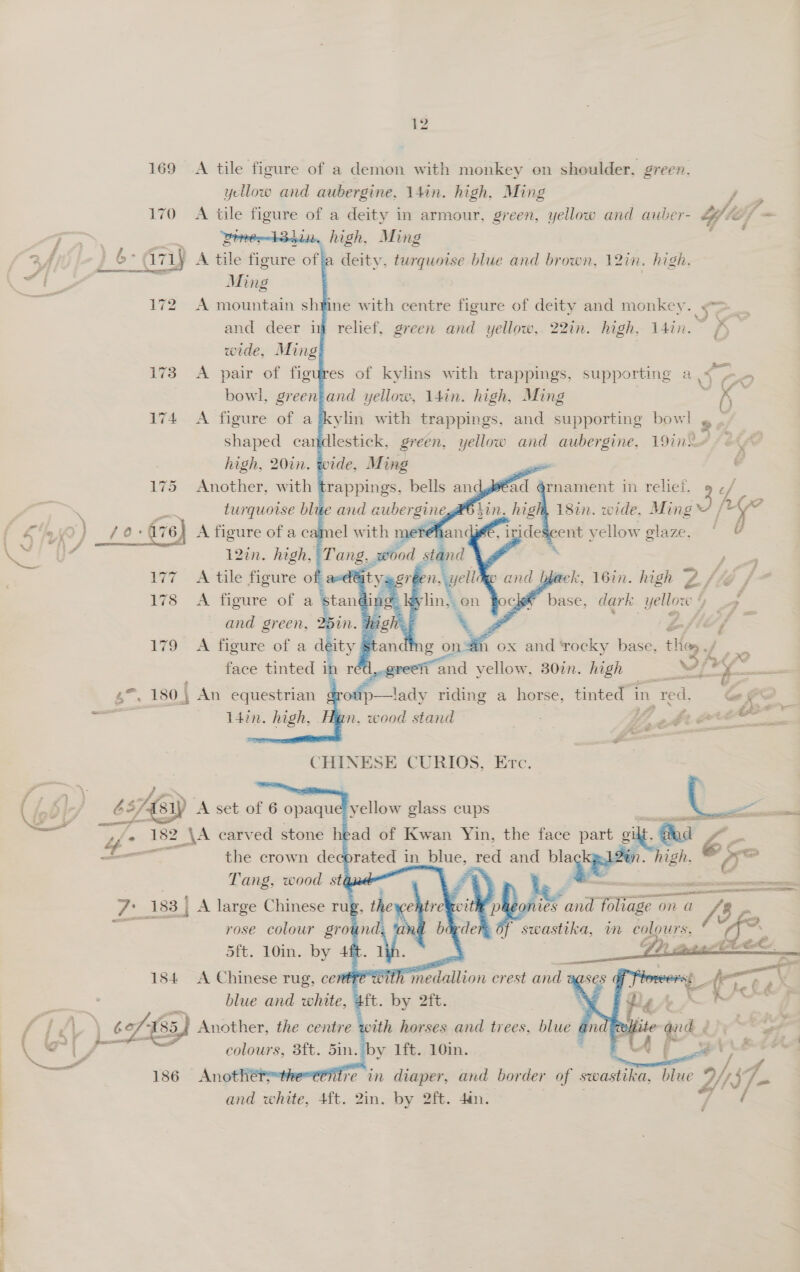 12
169 A tile figure of a demon with monkey on shoulder, green,
yellow and aubergine, 14in. high, Ming
170 A tile figure of a deity in armour, green, yellow and auber-
high, Ming
171 A tile figure of a deity, turquoise blue and brown, 12in. high,
Ming
172 A mountain shrine with centre figure of deity and monkey.
and deer in relief, green and yellow, 22in. high, 14in.
wide, Ming
173 A pair of figures of kylins with trappings, supporting a
bowl, green and yellow, 14in. high, Ming
174 A figure of a kylin with trappings, and supporting bowl
shaped candlestick, green, yellow and aubergine, 19in.
high, 20in. wide, Ming
175 Another, with trappings, bells and head ornament in relief,
turquoise blue and aubergine, high, 18in. wide, Ming
176 A figure of a camel with iridescent yellow glaze,
12in. high, Tang, wood stand
177 A tile figure of a deity, green, yellow and black, 16in. high
178 A figure of a standing kylin, on rocky base, dark yellow
and green, 25in. high
179 A figure of a deity standing on an ox and rocky base, the
face tinted in red, green and yellow, 30in. high
180 An equestrian group—lady riding a horse, tinted in red,
14in. high, Han, wood stand
CHINESE CURIOS, Etc.
181 A set of 6 opaque yellow glass cups
182 A carved stone head of Kwan Yin, the face part gilt, and
the crown decorated in blue, red and black, 12in. high,
Tang, wood stand
7. 183 A large Chinese rug, the centre with pæonies and foliage on a
rose colour ground, and border of swastika, in colours,
5ft. 10in. by 4ft. 1in.
184 A Chinese rug, centre with medallion crest and vases of flowers,
blue and white, 4ft. by 2ft.
185 Another, the centre with horses and trees, blue and white and
colours, 3ft. 5in. by 1ft. 10in.
186 Another, the centre in diaper, and border of swastika, blue
and white, 4ft. 2in. by 2ft. 4in.